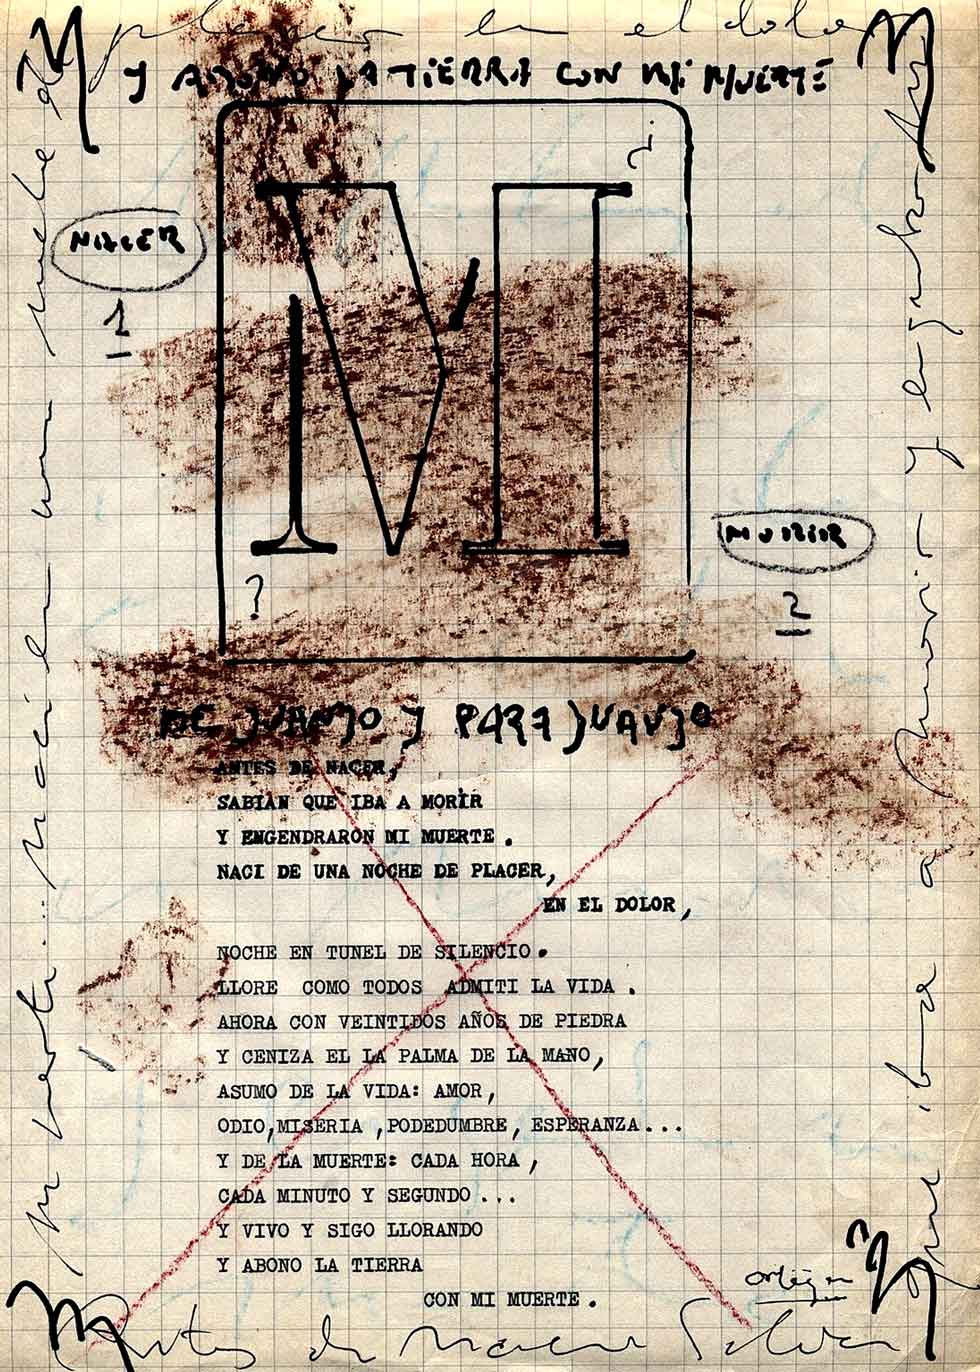 placer en el dolor
Y ABONO LA TIERRA CON MI MUERTE
2
M
NACER
1
?
MORIR
2
DE JUANJO Y PARA JUANJO
ANTES DE NACER,
SABIAN QUE IBA A MORIR
Y ENGENDRARON MI MUERTE.
NACI DE UNA NOCHE DE PLACER,
EN EL DOLOR,
NOCHE EN TUNEL DE SILENCIO.
LLORE COMO TODOS ADMITI LA VIDA.
AHORA CON VEINTIDOS AÑOS DE PIEDRA
Y CENIZA EL LA PALMA DE LA MANO,
ASUMO DE LA VIDA: AMOR,
ODIO,MISERIA ,PODEDUMBRE, ESPERANZA...
Y DE LA MUERTE: CADA HORA,
CADA MINUTO Y SEGUNDO...
Y VIVO Y SIGO LLORANDO
Y ABONO LA TIERRA
CON MI MUERTE.
mi muerte... naci de una noche de
Antes de nacer Sabian
que iba a Morir y engendraron